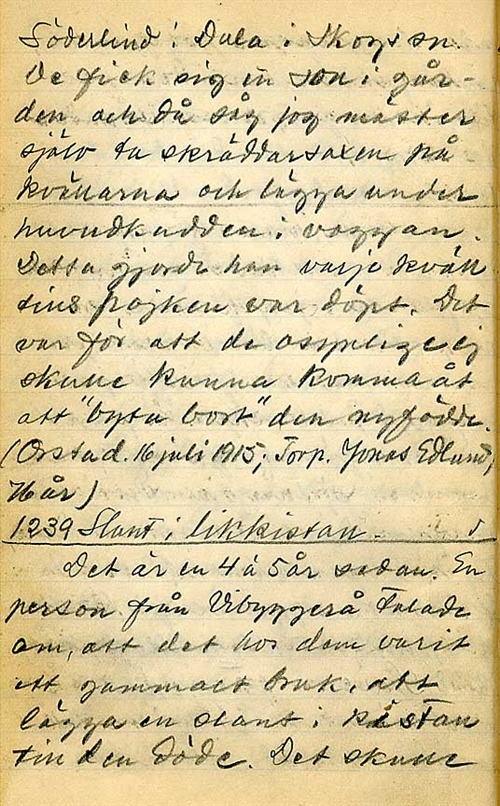 Söderlind i Dala i Skogs sn.
De fick sig en son i går-
den och då såg jag mäster
själv ta skräddarsaxen på
kvällarna och lägga under
huvudkudden i vaggan.
Detta gjorde han varje kväll
tills pojken var döpt. Det
var för att de osynlige ej
skulle kunna komma åt
att "byta bort" den nyfödde.
(Orstad. 16 juli 1915; Torp. Jonas Edlund,
76 år)
1239 Slant i likkistan.
Det är en 4 à 5 år sedan. En
person från Vibyggerå talade
om, att det hos dem varit
ett gammalt bruk, att
lägga en slant i kistan
till den döde. Det skulle